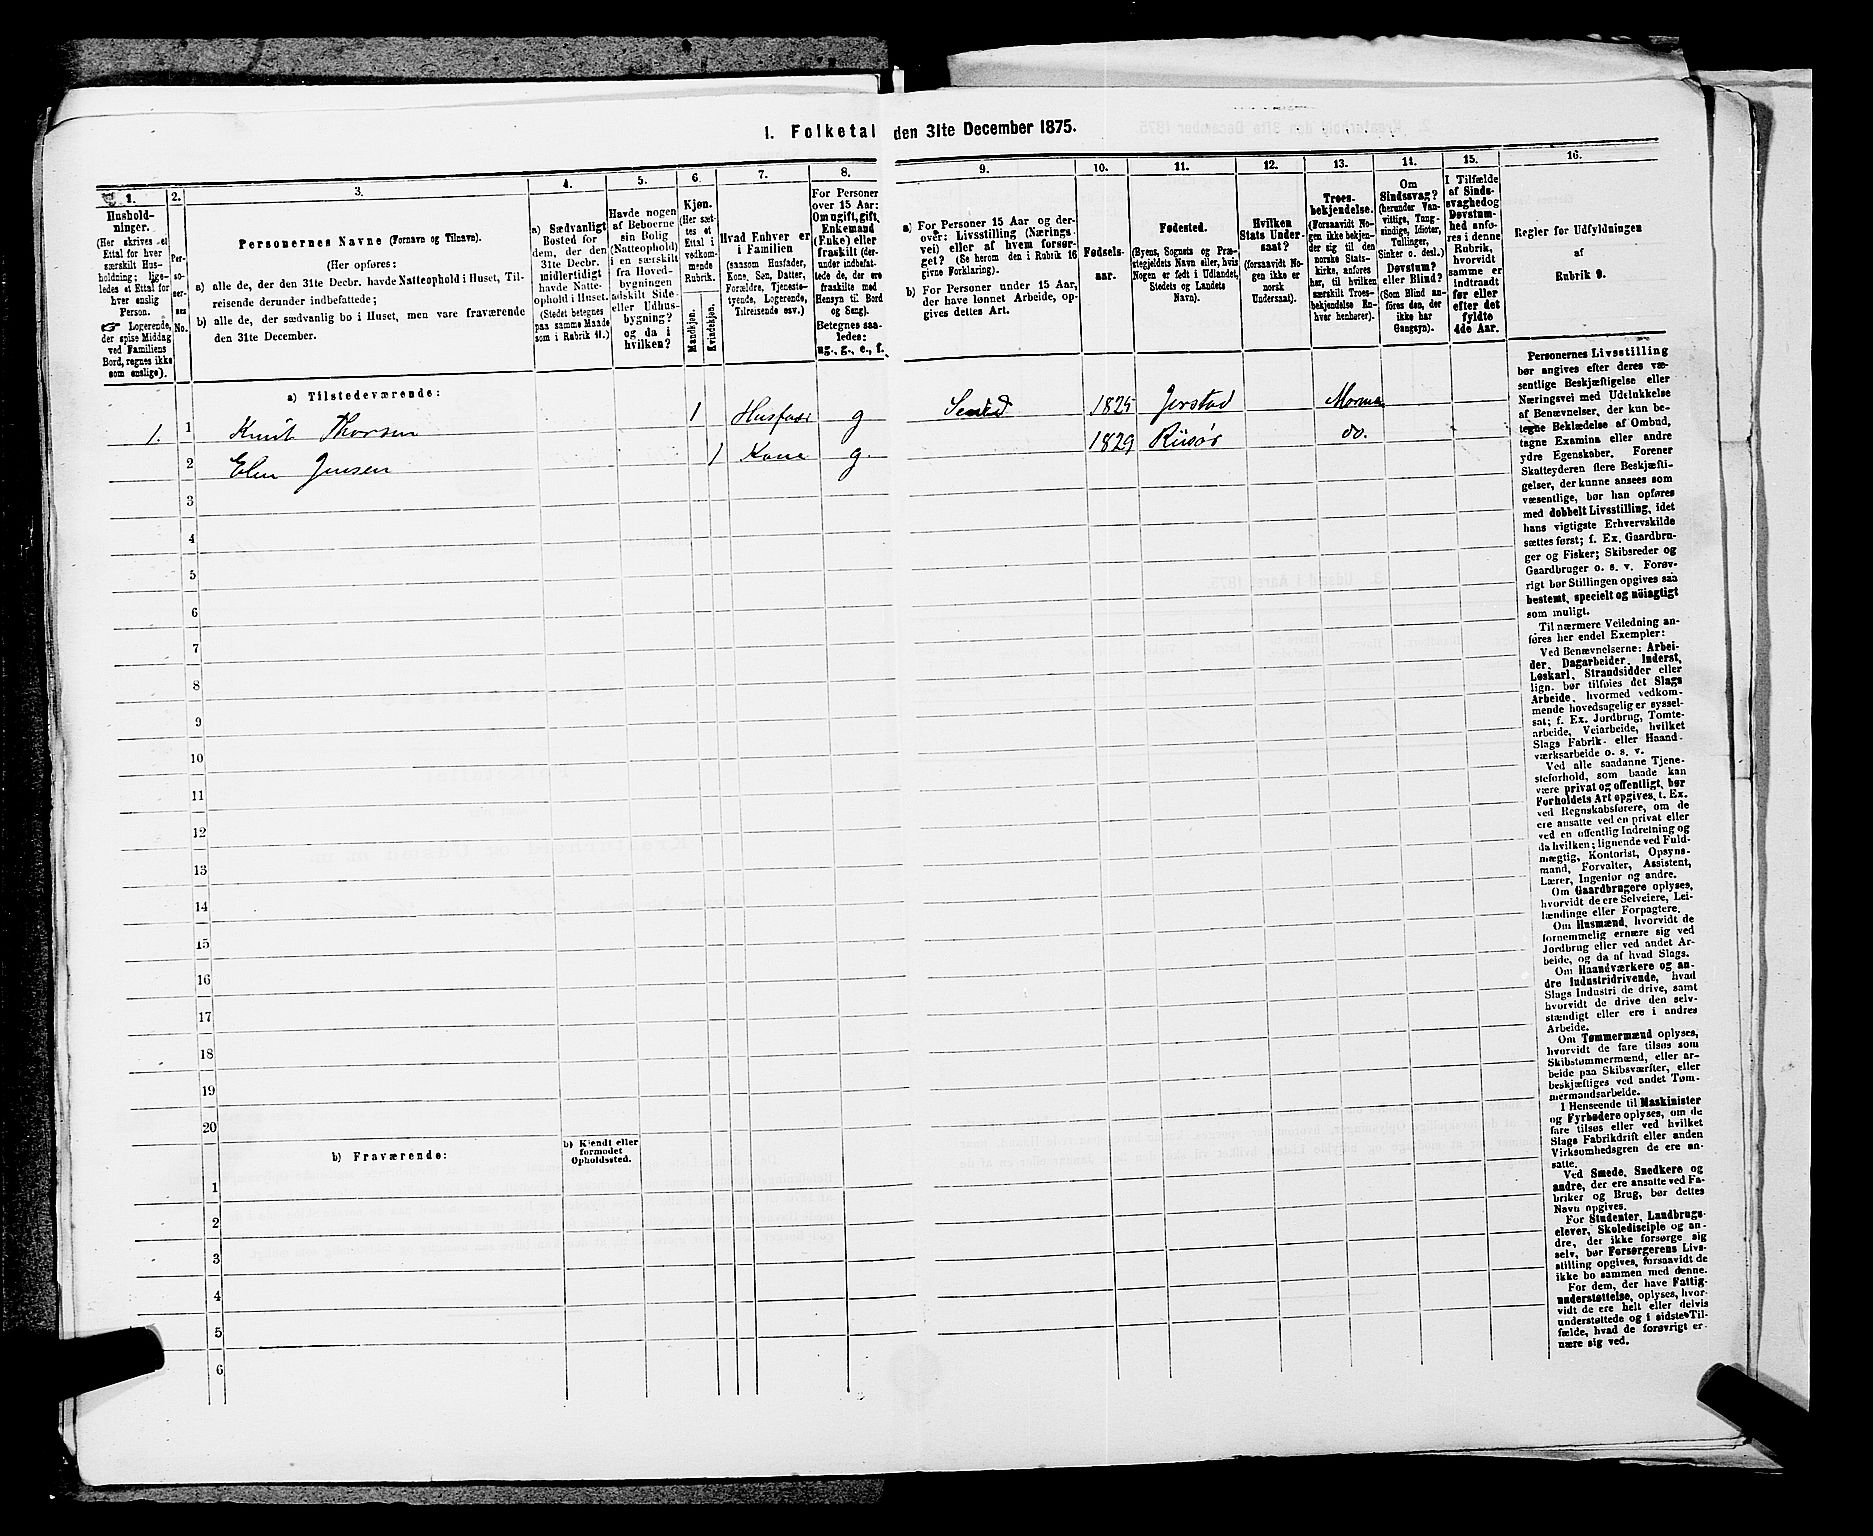 1. Folketal den 31te December 1875.
1.
Hushold-
ninger.
(Her skrives et
Ettal for hver
særskilt Hus-
holdning; lige-
ledes et Ettal for
hver enslig
Person.
☞ Logerende,
der spise Middag
ved Familiens
Bord, regnes ikke
som enslige).
2.
Per-
so-
ner-
nes
No.
3.
Personernes Navne (Fornavn og Tilnavn).
(Her opføres:
a) alle de, der den 31te Decbr. havde Natteophold i Huset, Til-
reisende derunder indbefattede;
b) alle de, der sædvanlig bo i Huset, men vare fraværende
den 31te December.
4.
a) Sædvanligt
Bosted for
dem, der den
31te Decbr.
midlertidigt
havde Natte-
ophold i Huset.
(Stedet betegnes
paa samme Maade
som i Rubrik 11.)
5.
Havde nogen
af Beboerne
sin Bolig
(Natteophold)
i en særskilt
fra Hoved-
bygningen
adskilt Side-
eller Udhus-
bygning?
og da i
hvilken?
6.
Kjøn.
(Her sæt-
tes et
Ettal i
vedkom-
mende
Rubrik.
Mandkjøn.
Kvindekjøn.
7.
Hvad Enhver er
i Familien
(saasom Husfader,
Kone, Søn, Datter,
Forældre, Tjeneste-
tyende, Logerende,
Tilreisende osv.)
8.
For Personer
over 15 Aar:
Om ugift, gift,
Enkemand
(Enke) eller
fraskilt (der-
under indbefat-
tede de, der ere
fraskilte med
Hensyn til Bord
og Seng).
Betegnes saa-
ledes:
ug., g., e., f.
9.
a) For Personer 15 Aar og der-
over: Livsstilling (Nærings-
vei) eller af hvem forsør-
get? (Se herom den i Rubrik 16
givne Forklaring).
b) For Personer under 15 Aar,
der have lønnet Arbeide, op-
gives dettes Art.
10.
Fødsels-
aar.
11.
Fødested.
(Byens, Sognets og Præ-
stegjeldets Navn eller, hvis
Nogen er født i Udlandet,
Stedets og Landets
Navn).
12.
Hvilken
Stats Under-
saat?
(forsaavidt No-
gen ikke er
norsk
Undersaat).
13.
Troes-
bekjendelse.
(Forsaavidt No-
gen ikke bekjen-
der sig til den
norske Stats-
kirke, anføres
her, til hvilken
særskilt Troes-
bekjendelse En-
hver henhører).
14.
Om
Sindssvag?
(herunder Van-
vittige, Tung-
sindige, Idioter,
Tullinger,
Sinker o. desl.)
Døvstum?
eller Blind?
(Som Blind an-
føres den, der
ikke har
Gangsyn).
15.
I Tilfælde
af Sinds-
svaghed og
Døvstum-
hed anfø-
res i denne
Rubrik,
hvorvidt
samme er
indtraadt
før eller
efter det
fyldte
4de Aar.
16.
Regler for Udfyldningen
af
Rubrik 9.
a) Tilstedeværende:
1. 1 Knut Thorsen 1 Husfader g Smed 1825 Jerstad Morman
2 Elen Jensen 1 Kone g. 1829 Riisør do.
3
4
5
6
7
8
9
10
11
12
13
14
15
16
17
18
19
20
b) Fraværende:
b) Kjendt eller
formodet
Opholdssted.
1
2
3
4
5
6
Personernes Livsstilling
bør angives efter deres væ-
sentlige Beskjæftigelse eller
Næringsvei med Udelukkelse
af Benævnelser, der kun be-
tegne Beklædelse af Ombud,
tagne Examina eller andre
ydre Egenskaber. Forener
Skatteyderen flere Beskjæfti-
gelser, der kunne ansees som
væsentlige, bør han opføres
med dobbelt Livsstilling, idet
hans vigtigste Erhvervskilde
sættes først; f. Ex. Gaardbru-
ger og Fisker; Skibsreder og
Gaardbruger o. s. v. Forøv-
rigt bør Stillingen opgives saa
bestemt, specielt og nöiagtigt
som muligt.
Til nærmere Veiledning an-
føres her endel Exempler:
Ved Benævnelserne: Arbei-
der, Dagarbeider, Inderst,
Løskarl, Strandsidder eller
lign. bør tilføies det Slags
Arbeide, hvormed vedkom-
mende hovedsagelig er syssel-
sat; f. Ex. Jordbrug, Tomte-
arbeide, Veiarbeide, hvilket
Slags Fabrik- eller Haand-
værksarbeide o. s. v.
Ved alle saadanne Tjene-
steforhold, som baade kan
være privat og offentligt, bør
Forholdets Art opgives, t. Ex.
ved Regnskabsførere, om de
ere ansatte ved en privat eller
ved en offentlig Indretning og
da hvilken; lignende ved Fuld-
mægtig, Kontorist, Opsyns-
mand, Forvalter, Assistent,
Lærer, Ingeniør og andre.
Om Gaardbrugere oplyses,
hvorvidt de ere Selveiere, Lei-
lændinge eller Forpagtere.
Om Husmænd, hvorvidt de
fornemmelig ernære sig ved
Jordbrug eller ved andet Ar-
beide, og da af hvad Slags.
Om Haandværkere og an-
dre Industridrivende, hvad
Slags Industri de drive, samt
hvorvidt de drive den selv-
stændigt eller ere i andres
Arbeide.
Om Tømmermænd oplyses,
hvorvidt de fare tilsøs som
Skibstømmermænd, eller ar-
beide paa Skibsværfter, eller
beskjæftiges ved andet Tøm-
mermandsarbeide.
I Henseende til Maskinister
og Fyrbødere oplyses, om de
fare tilsøs eller ved hvilket
Slags Fabrikdrift eller anden
Virksomhedsgren de ere an-
satte.
Ved Smede, Snedkere og
andre, der ere ansatte ved Fa-
briker og Brug, bør dettes
Navn opgives.
For Studenter, Landbrugs-
elever, Skoledisciple og an-
dre, der ikke forsørge sig
selv, bør Forsørgerens Livs-
stilling opgives, forsaavidt de
ikke bo sammen med denne.
For dem, der have Fattig-
understøttelse, oplyses, hvor-
vidt de ere helt eller delvis
understøttede og i sidste Til-
fælde, hvad de forøvrigt er-
nære sig ved.